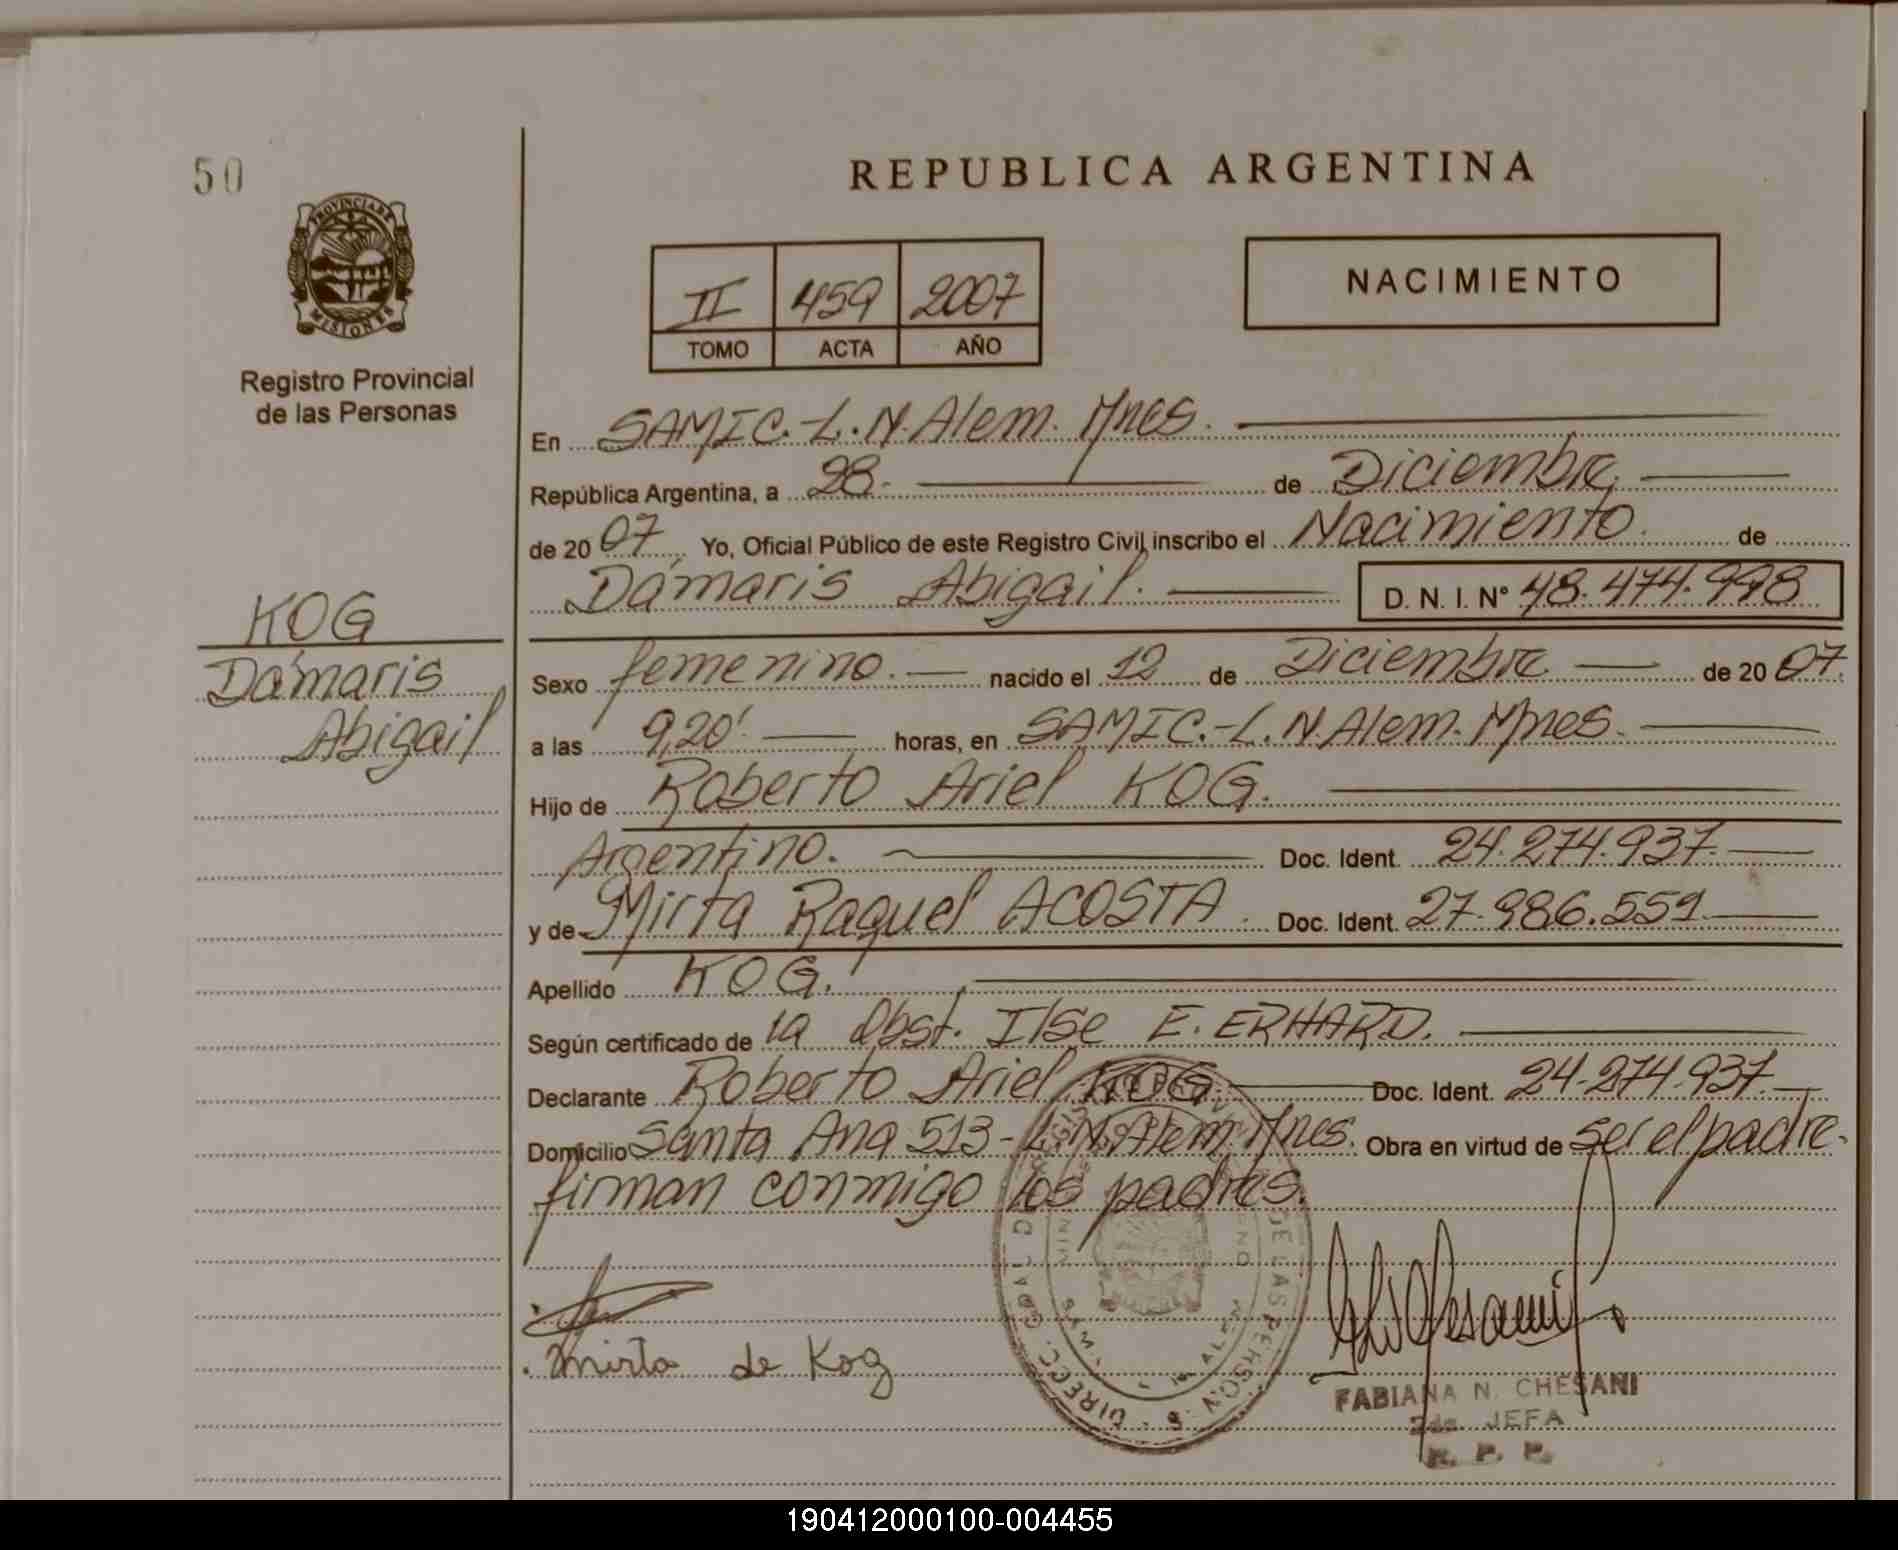 50
REPUBLICA ARGENTINA
PROVINCIA DE
MISIONES
Registro Provincial
de las Personas
II 459 2007
TOMO ACTA AÑO
NACIMIENTO
En SAMIC.-L.N.Alem. Mnes.
República Argentina, a 28. de Diciembre
de 20 07 Yo, Oficial Público de este Registro Civil inscribo el Nacimiento de
Dámaris Abigail. D. N. I. Nº 48.474.998
KOG
Dámaris
Abigail
Sexo femenino. nacido el 12 de Diciembre de 20 07.
a las 9,20' horas, en SAMIC.-L.N.Alem. Mnes.
Hijo de Roberto Ariel KOG.
Argentino. Doc. Ident. 24.274.937.
y de Mirta Raquel ACOSTA. Doc. Ident. 27.986.559.
Apellido KOG.
Según certificado de la Obst. Ilse E. ERHARD.
Declarante Roberto Ariel KOG. Doc. Ident. 24.274.937.
Domicilio Santa Ana 513-L.N.Alem. Mnes. Obra en virtud de ser el padre.
firman conmigo los padres.
Mirta de Kog
FABIANA N. CHESANI
2da JEFA
R. P. P.
190412000100-004455